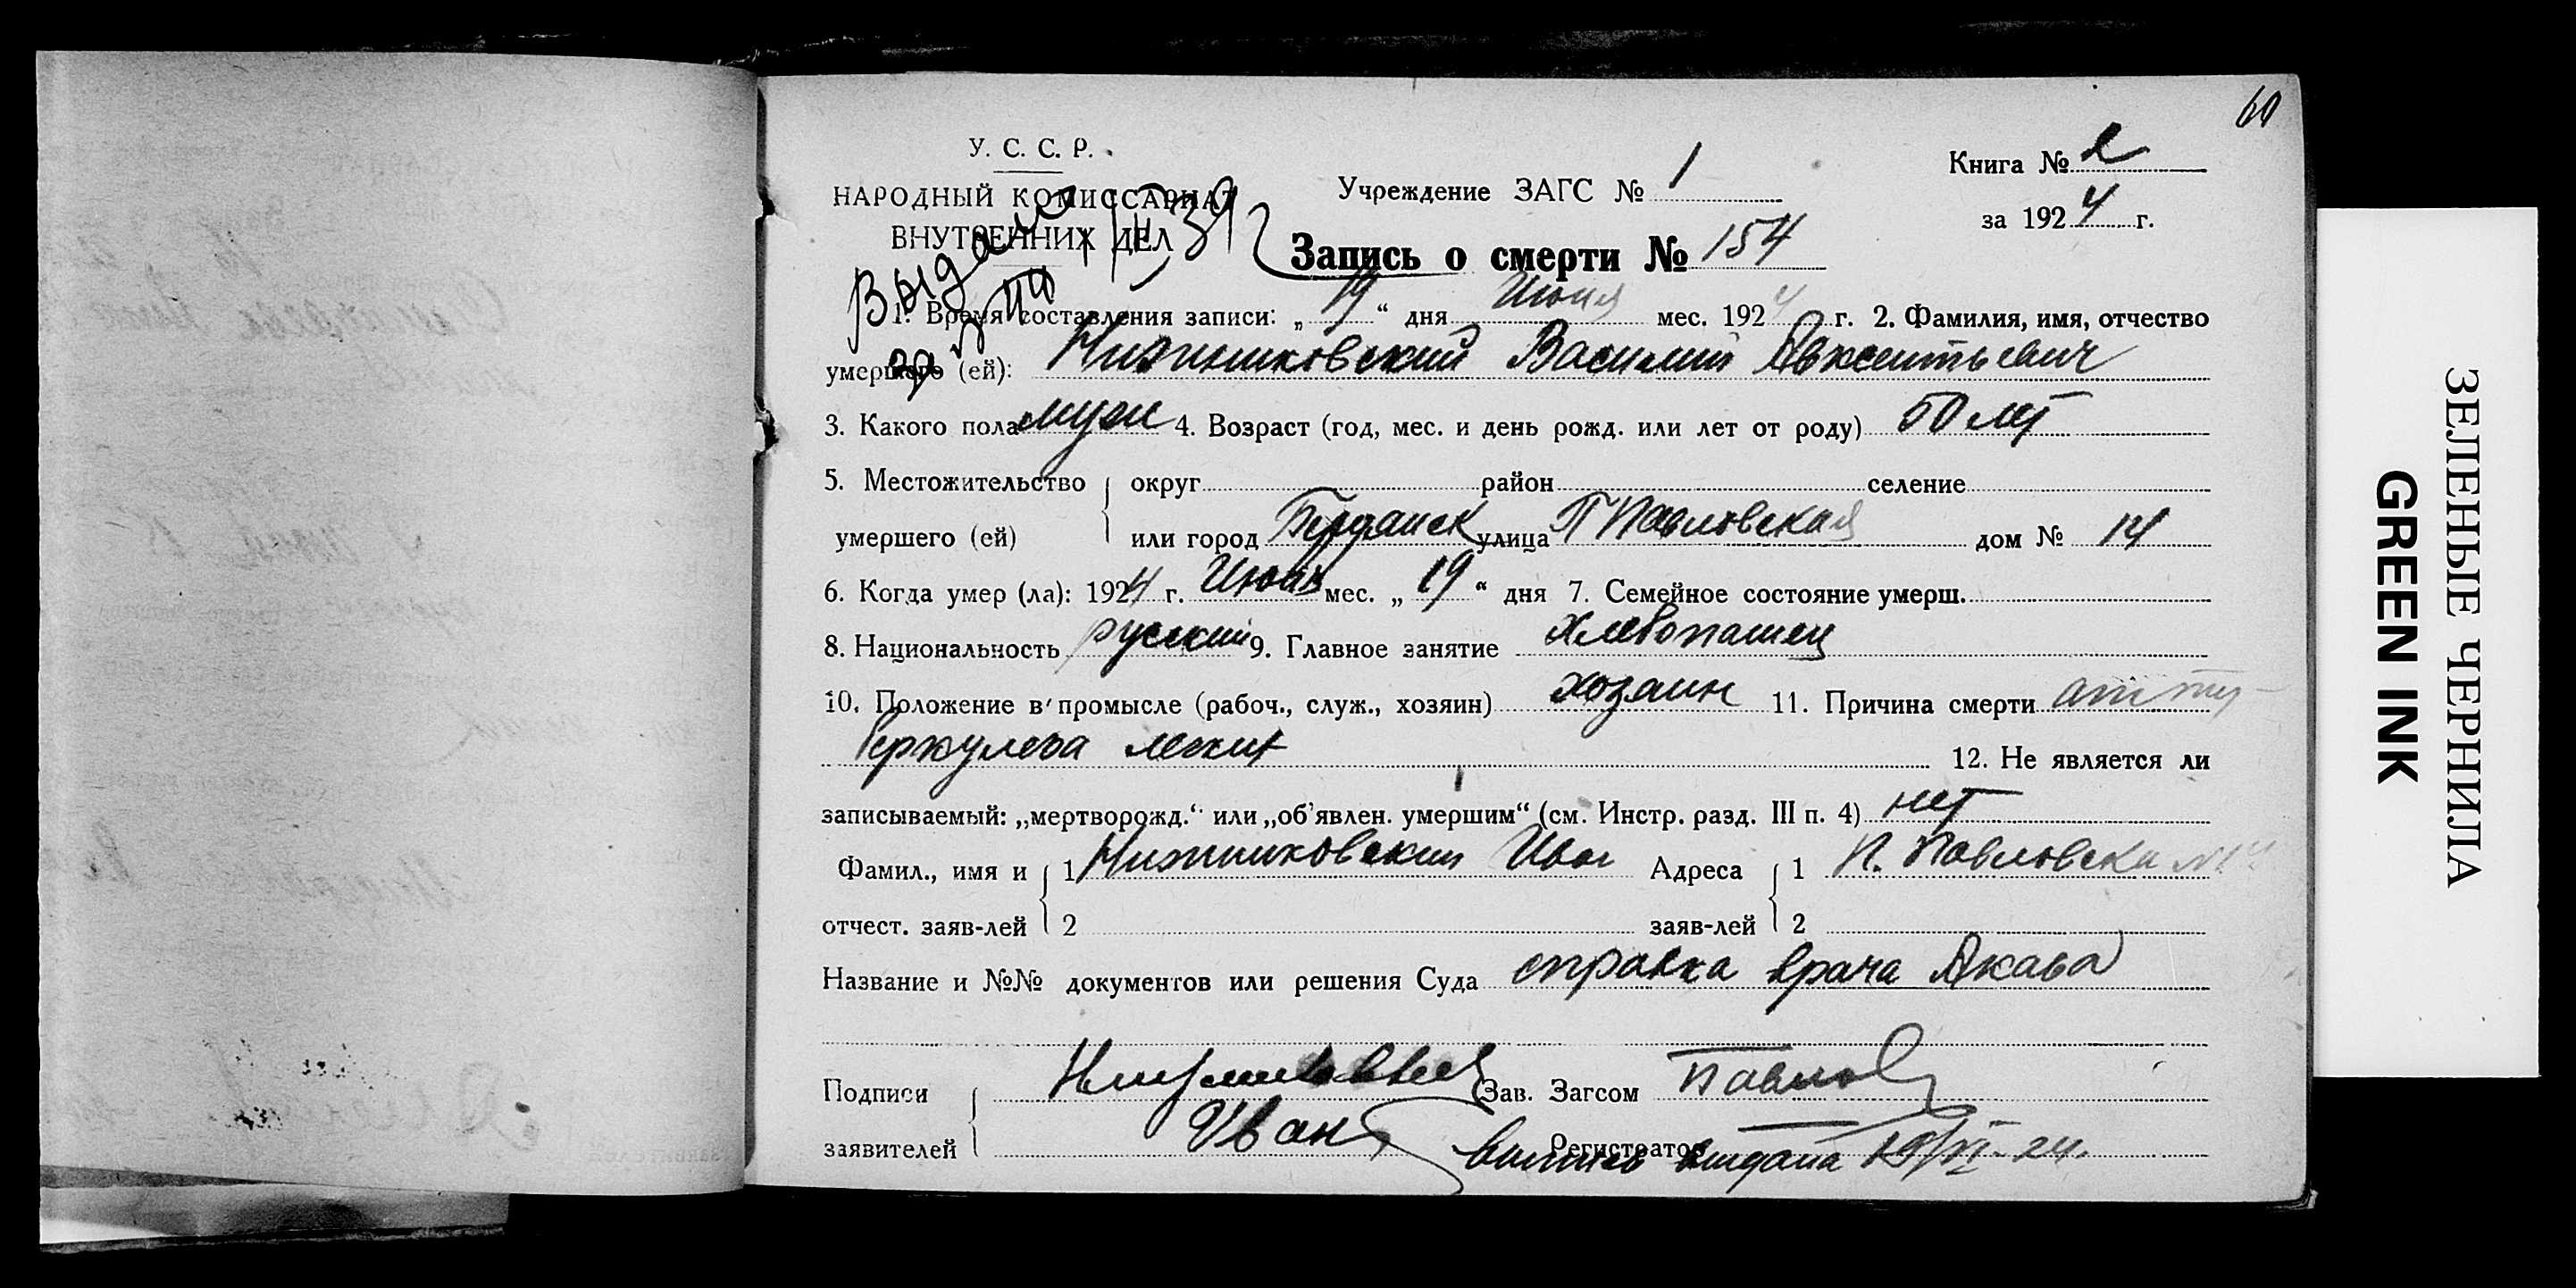 60
У. С. С. Р.
НАРОДНЫЙ КОМИССАРИАТ
ВНУТРЕННИХ ДЕЛ
Учреждение ЗАГС № 1
Книга № 2
за 1924 г.
Запись о смерти № 154
1. Время составления записи: „19“ дня Июня мес. 1924 г. 2. Фамилия, имя, отчество
умершего (ей): Нижниковский Василий Авксентьевич
3. Какого пола муж 4. Возраст (год, мес. и день рожд. или лет от роду) 50 лет
5. Местожительство округ район селение
умершего (ей) или город Бердянск улица П Павловская дом № 14
6. Когда умер (ла): 1924 г. Июня мес. „19“ дня 7. Семейное состояние умерш.
8. Национальность русский 9. Главное занятие Хлебопашец
10. Положение в промысле (рабоч., служ., хозяин) хозяин 11. Причина смерти от ту-
беркулеза легких
12. Не является ли
записываемый: „мертворожд.“ или „об'явлен. умершим“ (см. Инстр. разд. III п. 4) нет
Фамил., имя и 1 Нижниковский Иван Адреса 1 П. Павловска №14
отчест. заяв-лей 2 заяв-лей 2
Название и №№ документов или решения Суда справка врача
Подписи Зав. Загсом Павлов
заявителей Иван Регистратор
выпись выдана 19/VI-24.
Выдано
ЗЕЛЕНЫЕ ЧЕРНИЛА
GREEN INK